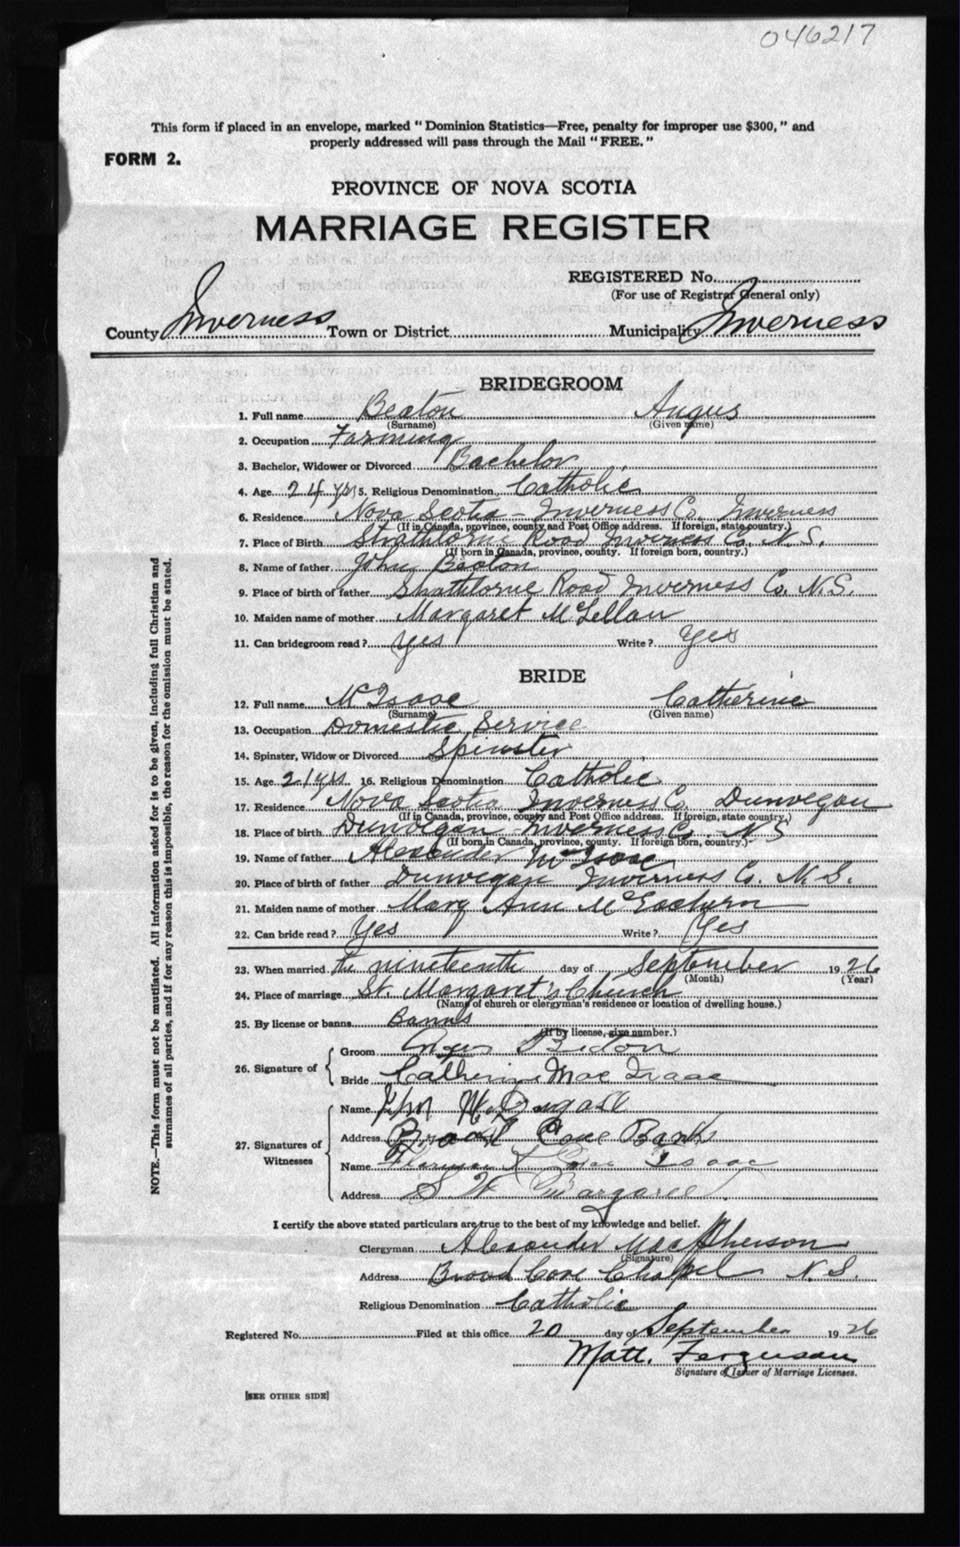 046217
This form if placed in an envelope, marked "Dominion Statistics—Free, penalty for improper use $300," and
properly addressed will pass through the Mail "FREE."
FORM 2.
PROVINCE OF NOVA SCOTIA
MARRIAGE REGISTER
REGISTERED No.
(For use of Registrar General only)
County Inverness Town or District Municipality Inverness
BRIDEGROOM
1. Full name Beaton Angus
(Surname) (Given name)
2. Occupation Farming
3. Bachelor, Widower or Divorced Bachelor
4. Age 24 yrs 5. Religious Denomination Catholic
6. Residence Nova Scotia - Inverness Co. Inverness
(If in Canada, province, county and Post Office address. If foreign, state country.)
7. Place of Birth Strathlorne Road Inverness Co. N.S.
(If born in Canada, province, county. If foreign born, country.)
8. Name of father John Beaton
9. Place of birth of father Strathlorne Road Inverness Co. N.S.
10. Maiden name of mother Margaret McLellan
11. Can bridegroom read? Yes Write? Yes
BRIDE
12. Full name McIsaac Catherine
(Surname) (Given name)
13. Occupation Domestic Service
14. Spinster, Widow or Divorced Spinster
15. Age 21 yrs 16. Religious Denomination Catholic
17. Residence Nova Scotia Inverness Co. Dunvegan
(If in Canada, province, county and Post Office address. If foreign, state country.)
18. Place of birth Dunvegan Inverness Co. N S
(If born in Canada, province, county. If foreign born, country.)
19. Name of father Alexander McIsaac
20. Place of birth of father Dunvegan Inverness Co. N.S.
21. Maiden name of mother Mary Ann McEachern
22. Can bride read? Yes Write? Yes
23. When married the nineteenth day of September 1926
(Month) (Year)
24. Place of marriage St. Margaret's Church
(Name of church or clergyman's residence or location of dwelling house.)
25. By license or banns Banns
(If by license, give number.)
26. Signature of
Groom Angus Beton
Bride Catherine Mac Isaac
27. Signatures of
Witnesses
Name
Address Broad Cove Banks
Name Mac Isaac
Address S W Margaree
I certify the above stated particulars are true to the best of my knowledge and belief.
Clergyman Alexander MacPherson
(Signature)
Address Broad Cove Chapel N.S.
Religious Denomination Catholic
Registered No. Filed at this office 20 day of September 1926
Matt. Ferguson
Signature of Issuer of Marriage Licenses.
[SEE OTHER SIDE]
NOTE.—This form must not be mutilated. All information asked for is to be given, including full Christian and
surnames of all parties, and if for any reason this is impossible, the reason for the omission must be stated.